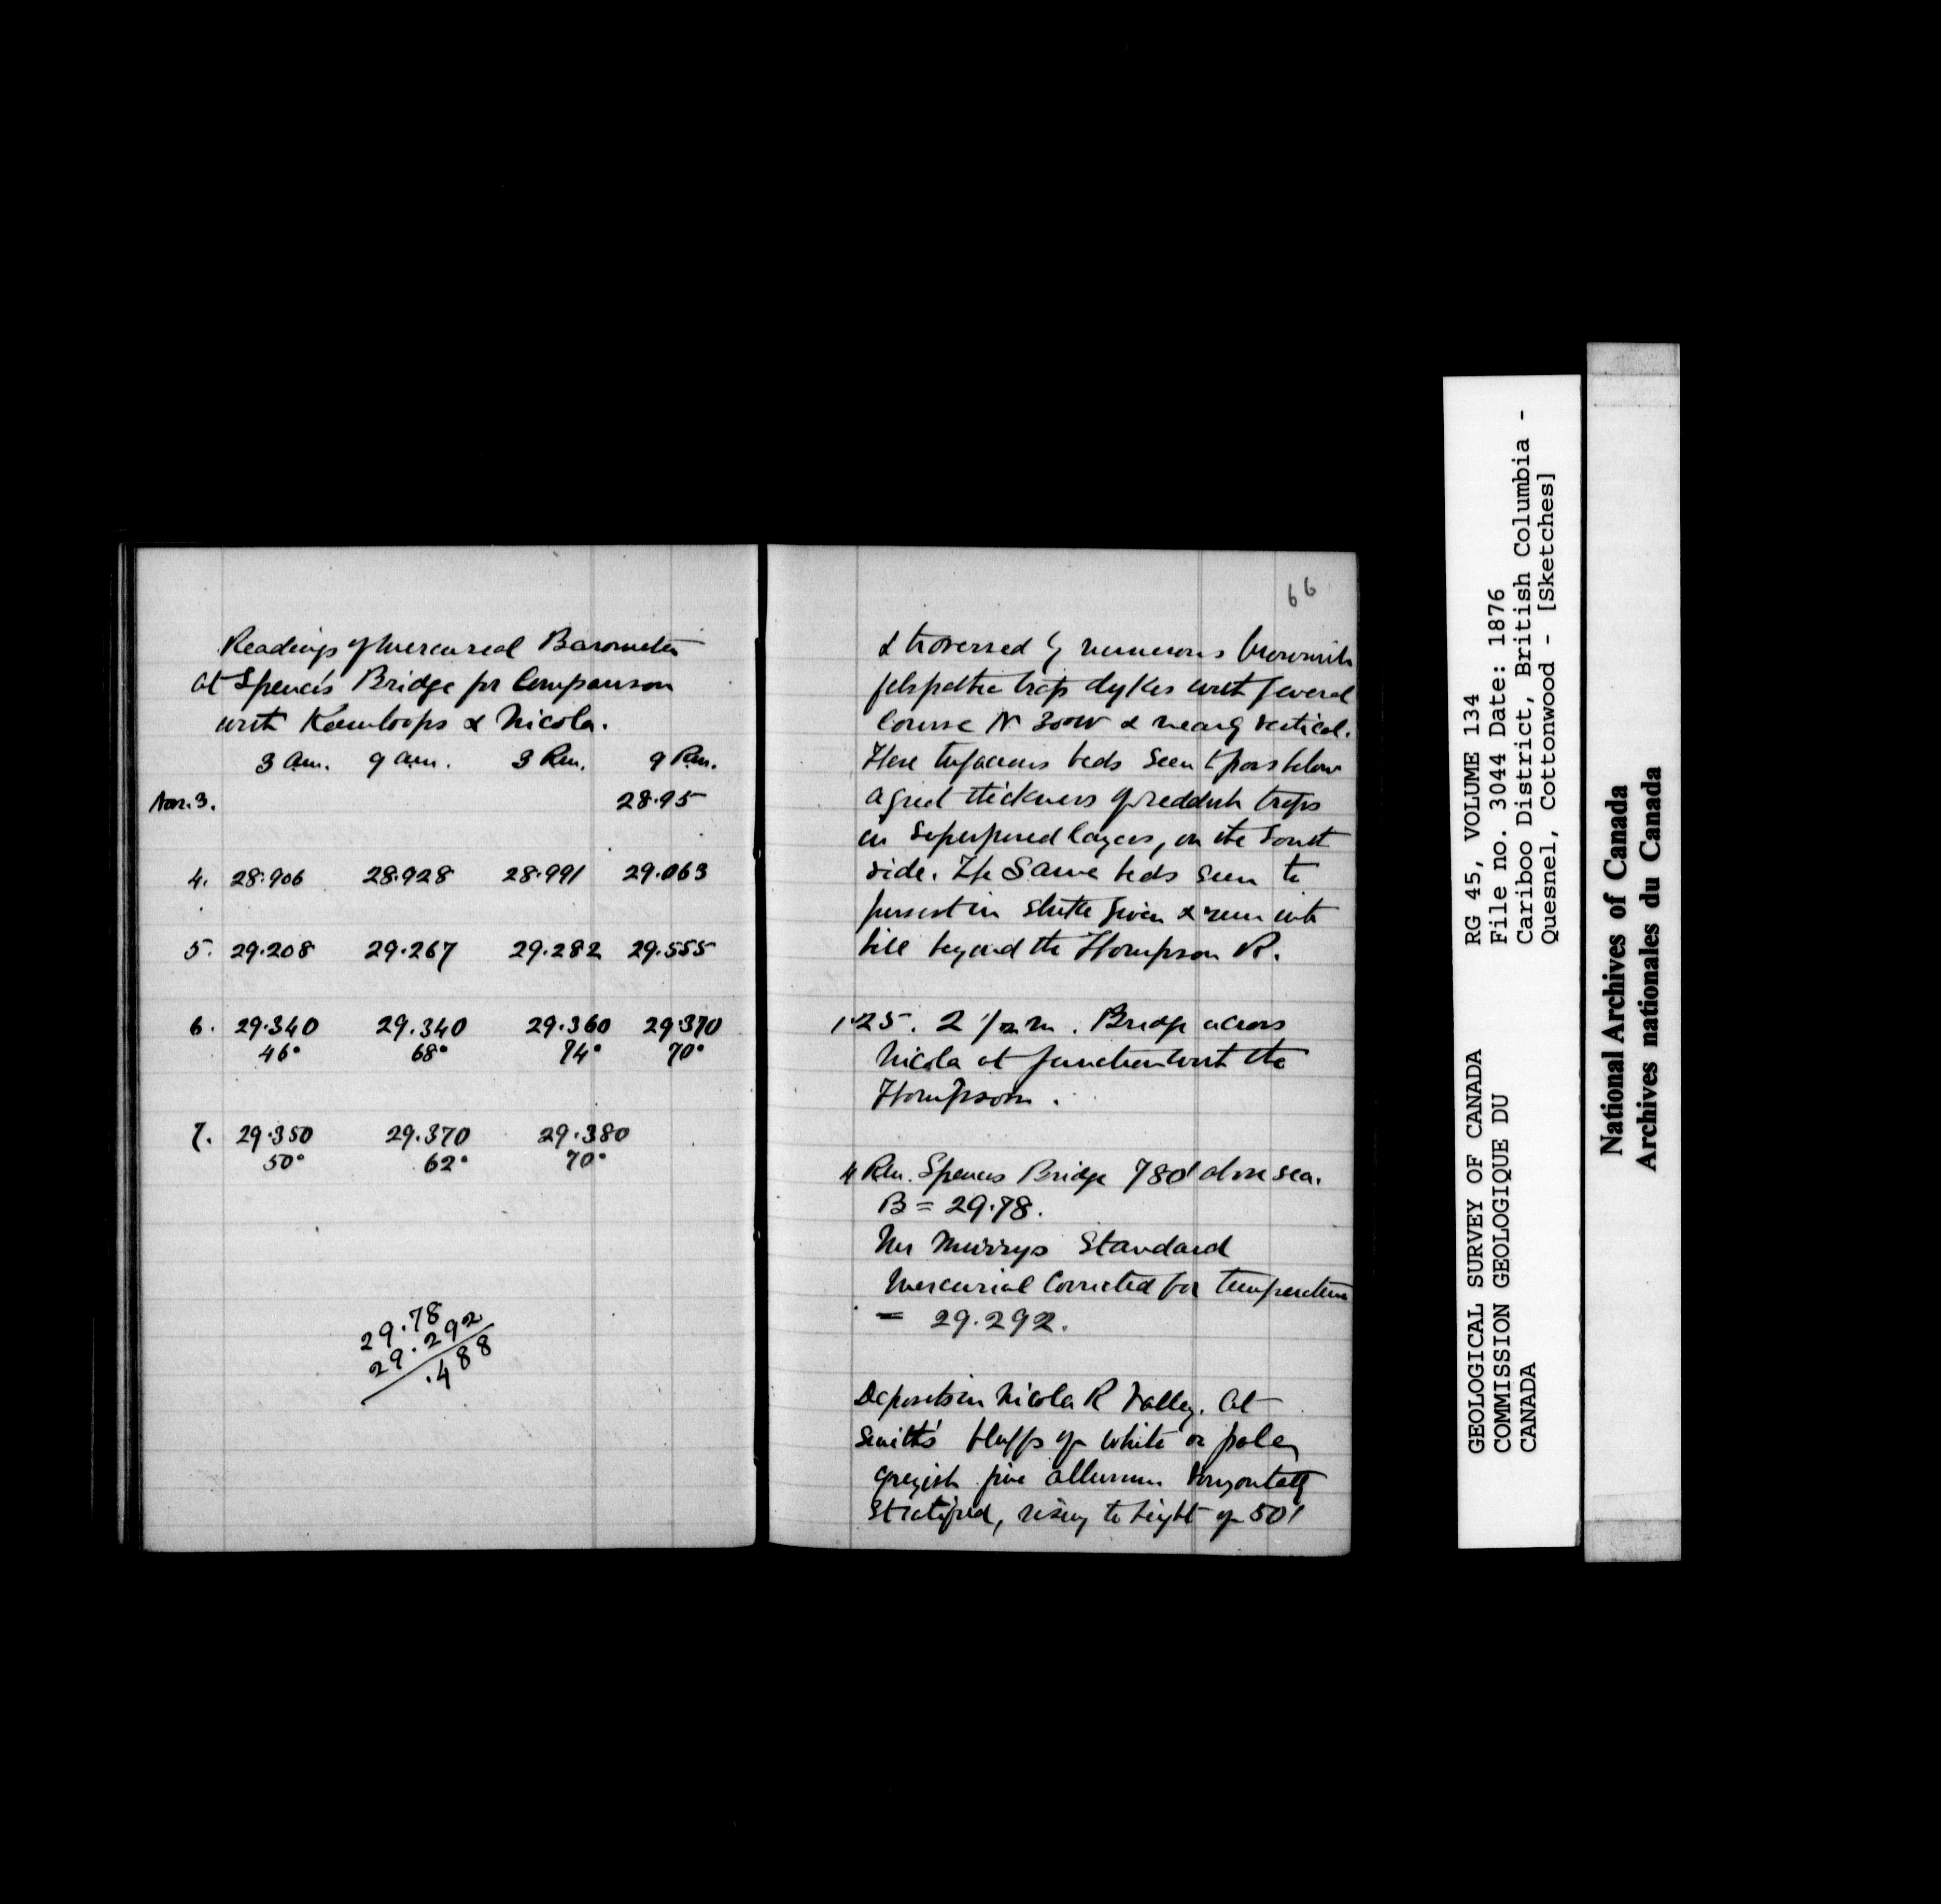 Readings of Mercureal Barometer
at Spence's Bridge for Comparison
with Kamloops & Nicola.
3 am. 9 am. 3 Pm. 9 Pm.
Nov. 3. 28.95
4. 28.906 28.928 28.991 29.063
5. 29.208 29.267 29.282 29.555
6. 29.340 29.340 29.360 29.370
46° 68° 74° 70°
7. 29.350 29.370 29.380
50° 62° 70°
29.78
29.292
.488
66
& traversed by numerous brownish
felspathic trap dykes with general
Course N 30 W & nearly vertical.
Here tufaceous beds seen to pass below
a great thickness of reddish traps
in superposed layers, on the South
side. The Same beds seem to
persist in strike given & run into
hill beyond the Thompson R.
1.25. 2 m. Bridge across
Nicola at junction with the
Thompson.
4 Pm. Spences Bridge 780' above sea.
B = 29.78.
Mr Murrys Standard
Mercurial Corrected for temperature
= 29.292.
Deposits in Nicola R Valley. At
Smith's bluffs of White or pale
greyish fine alluvium horizontally
Stratified, rising to height of 50'
GEOLOGICAL SURVEY OF CANADA
COMMISSION GEOLOGIQUE DU
CANADA
RG 45, VOLUME 134
File no. 3044 Date: 1876
Cariboo District, British Columbia -
Quesnel, Cottonwood - [Sketches]
National Archives of Canada
Archives nationales du Canada